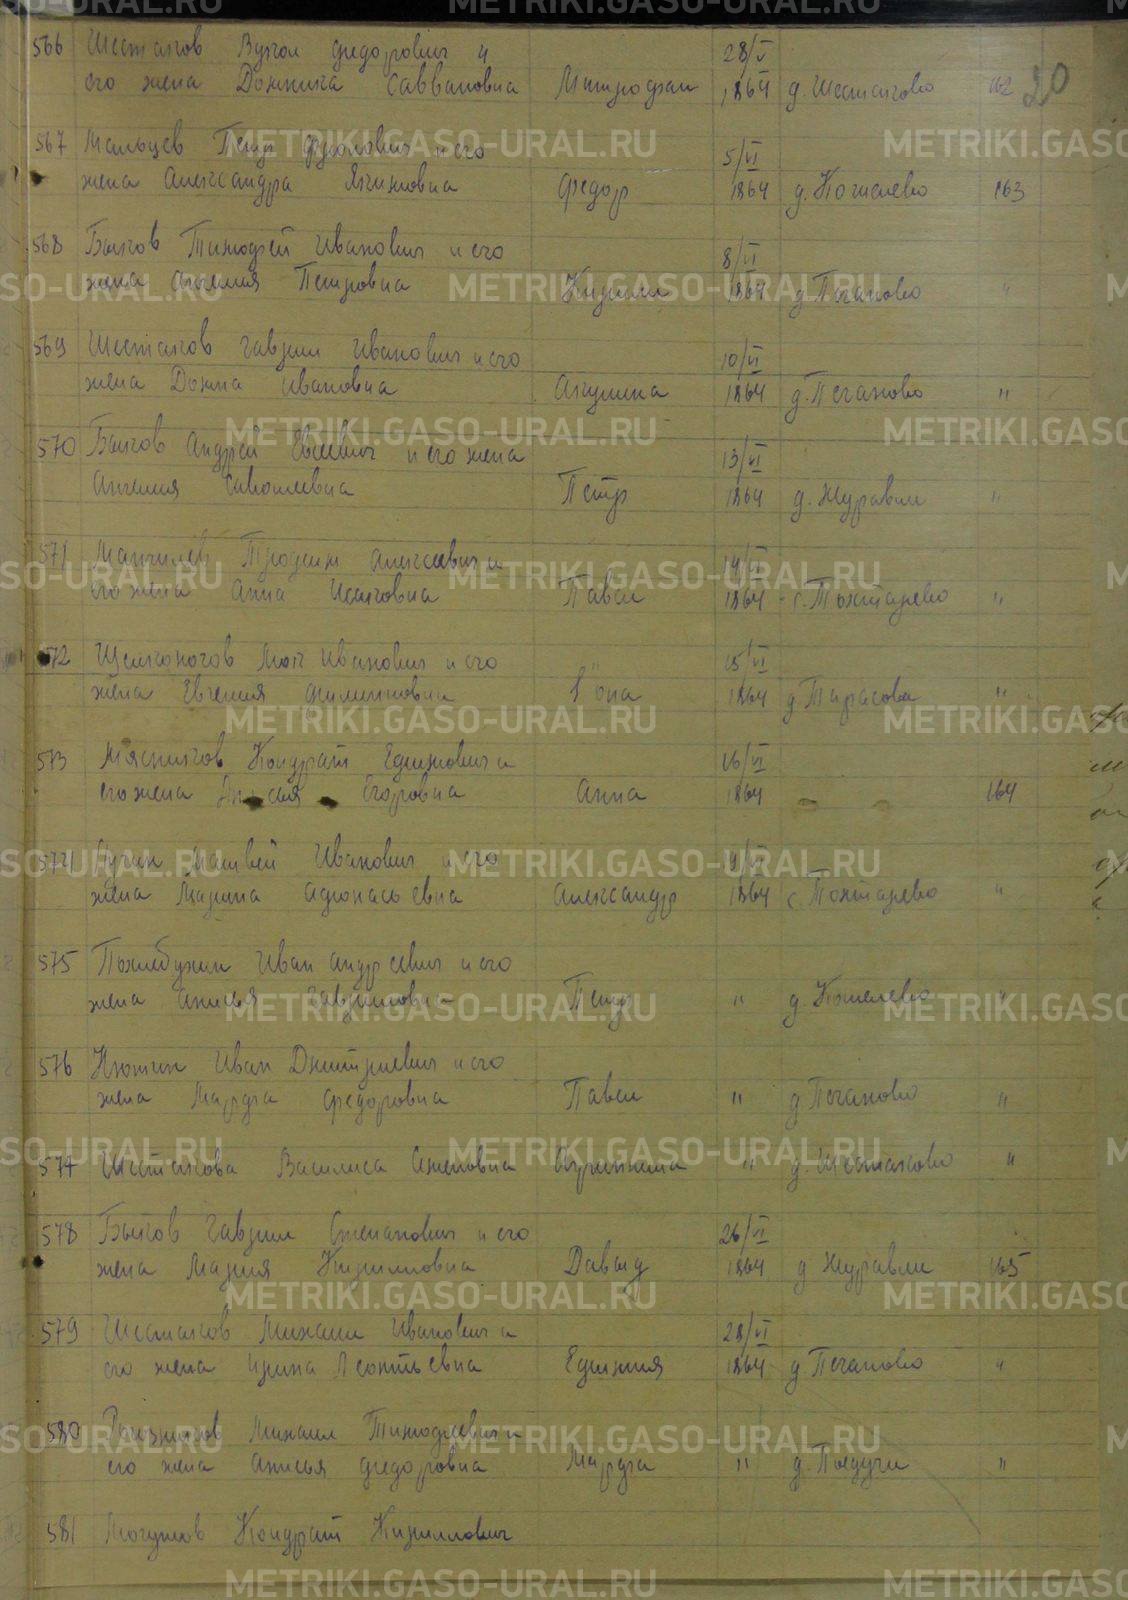 20
566 Шестаков Вукол Федорович и 28/V
его жена Домника Саввановна Митрофан 1864 д. Шестаково 162
567 Мальцев Петр Фролович и его 5/VI
жена Александра Якимовна Федор 1864 д. Кошелево 163
568 Быков Тимофей Иванович и его 8/VI
жена Петровна Кирилл 1864 д. Печаново "
569 Шестаков Гаврил Иванович и его 10/VI
жена Домна Ивановна Акулина 1864 д. Печаново "
570 Быков Андрей Евсеевич и его жена 13/VI
Савельевна Петр 1864 д. Журавли "
571 Трофим Алексеевич и 14/VI
его жена Анна Исаковна Павел 1864 с. Тохтарево "
572 Щелконогов Иванович и его 15/VI
жена Евгения Филипповна она 1864 д. Тарасова "
573 Мясников Кондрат Ефимович и 16/VI
его жена Егоровна Анна 1864 164
574 Матвей Иванович и его
жена Марина Афонасьевна Александр 1864 с. Тохтарево "
575 Похлебухин Иван Андреевич и его
жена Анисья Гавриловна Петр " д. Кошелево "
576 Иван Дмитриевич и его
жена Марфа Федоровна Павел " д. Печаново "
577 Шестакова Василиса " д. Шестаково "
578 Быков Гаврил Степанович и его 26/VI
жена Мария Кирилловна Давыд 1864 д. Журавли 165
579 Шестаков Михаил Иванович и 28/VI
его жена Ирина Леонтьевна Ефимия 1864 д. Печаново "
580 Михаил Тимофеевич и
его жена Анисья Федоровна Марфа " д.
581 Кондрат Кириллович
METRIKI.GASO-URAL.RU